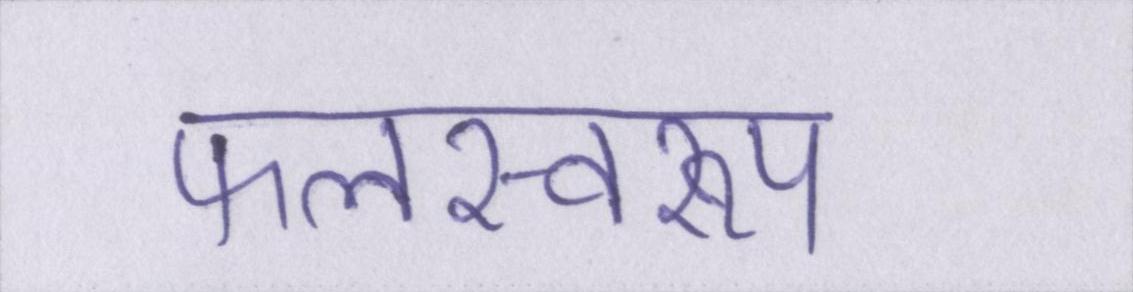 फलस्वरूप